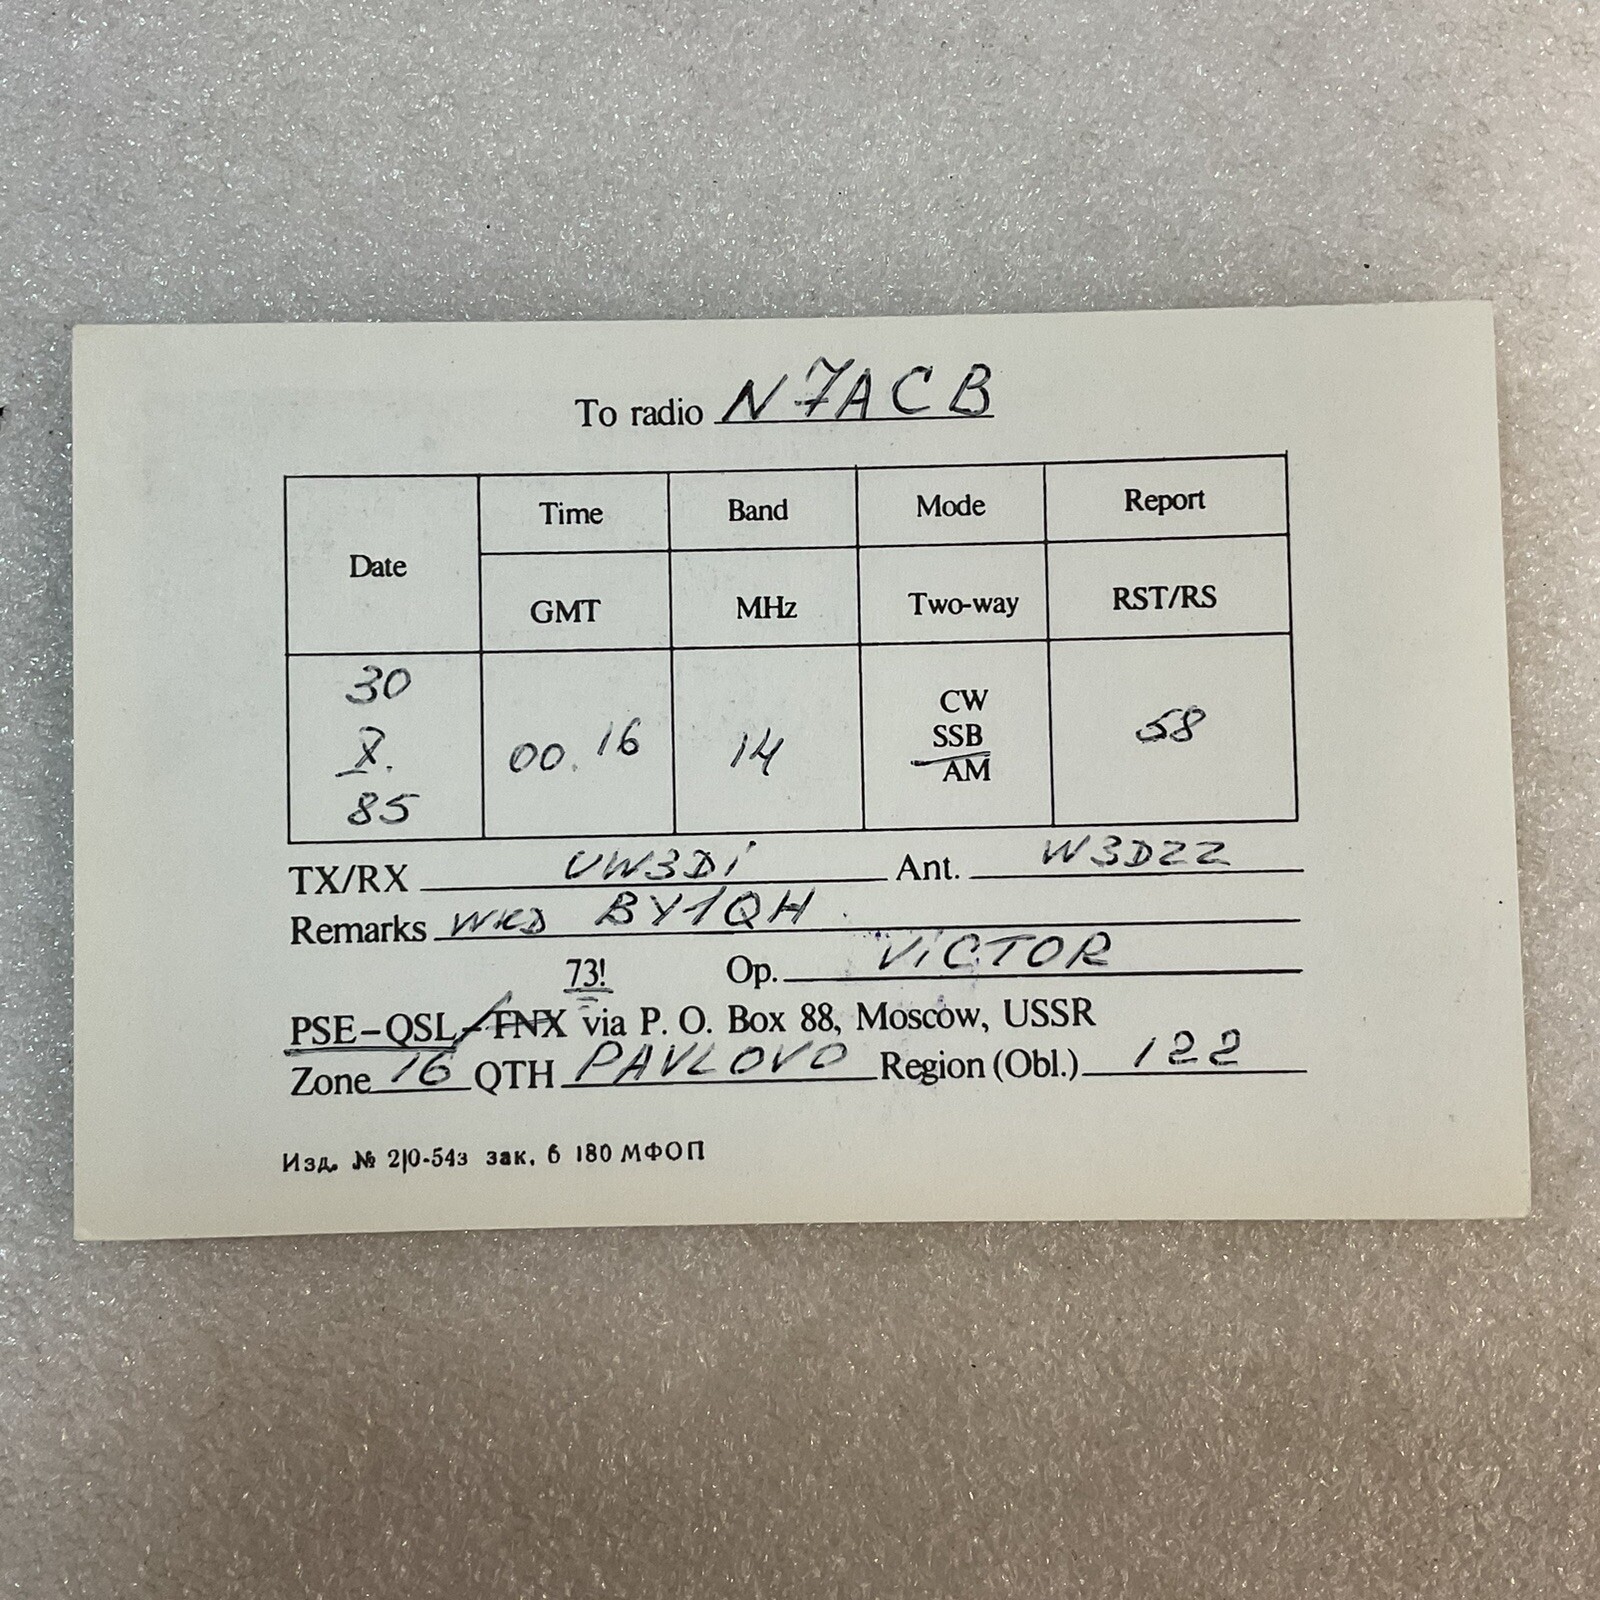 To radio N7ACB
Date Time Band Mode Report
GMT MHz Two-way RST/RS
30
X.
85
00.16 14
CW
SSB
AM
58
TX/RX UW3Di Ant. W3DZZ
Remarks WKD BY1QH
73! Op. ViCTOR
PSE-QSL-TNX via P. O. Box 88, Moscow, USSR
Zone 16 QTH PAVLOVO Region (Obl.) 122
Изд. № 2|0-54з зак. 6 180 МФОП